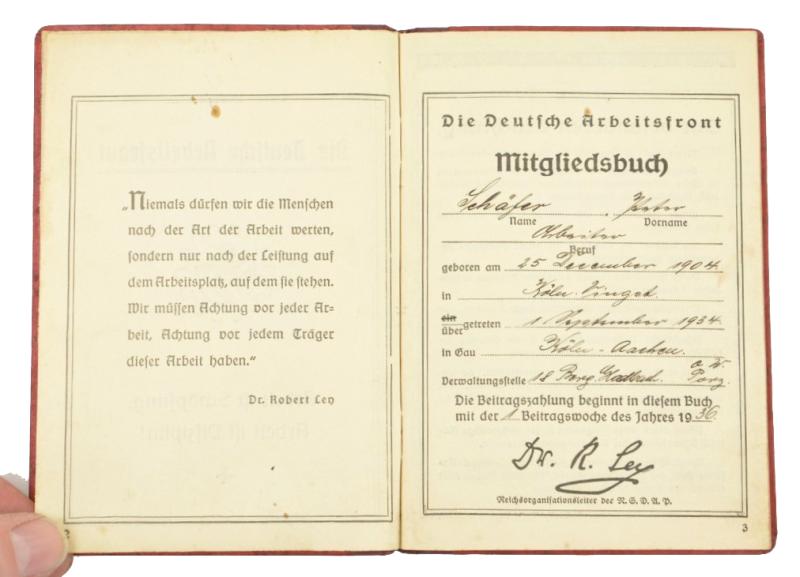 „Niemals dürfen wir die Menschen
nach der Art der Arbeit werten,
sondern nur nach der Leistung auf
dem Arbeitsplatz, auf dem sie stehen.
Wir müssen Achtung vor jeder Ar=
beit, Achtung vor jedem Träger
dieser Arbeit haben.“
Dr. Robert Ley
Die Deutsche Arbeitsfront
Mitgliedsbuch
Schäfer, Peter
Name Vorname
Arbeiter
Beruf
geboren am 25 December 1904.
in Köln-Vingst.
ein
übergetreten 1 September 1934.
in Gau Köln-Aachen.
Verwaltungsstelle 18 Berg. Gladbach Porz.
Die Beitragszahlung beginnt in diesem Buch
mit der 1 Beitragswoche des Jahres 1936.
Dr. R. Ley
Reichsorganisationsleiter der N.S.D.A.P.
3